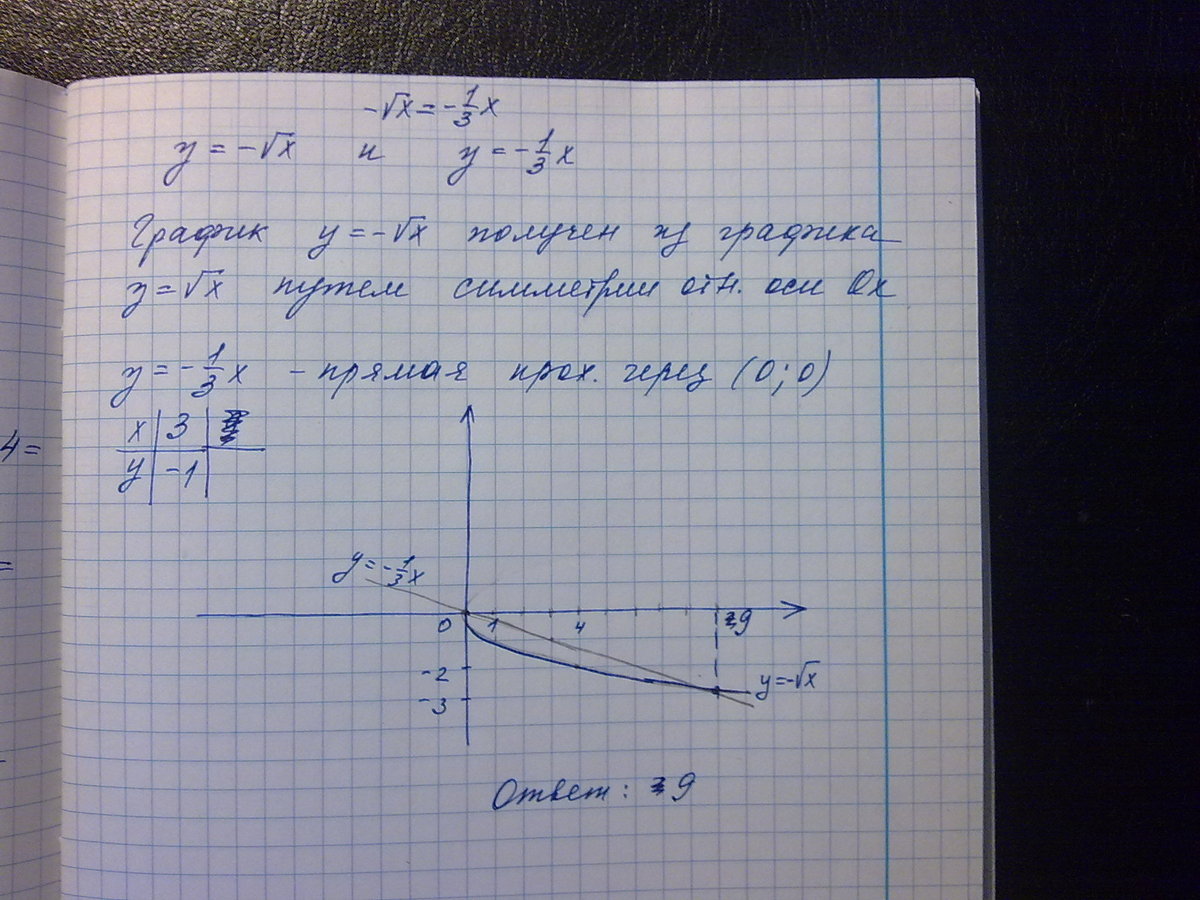 -√x = -1/3x
y = -√x и y = -1/3x
График y = -√x получен из графика
y = √x путем симметрии отн. оси Ox
y = -1/3x - прямая прох. через (0;0)
x 3
y -1
4=
=
y = -1/3x
0 1 4 9
-2
-3
y = -√x
Ответ: 9